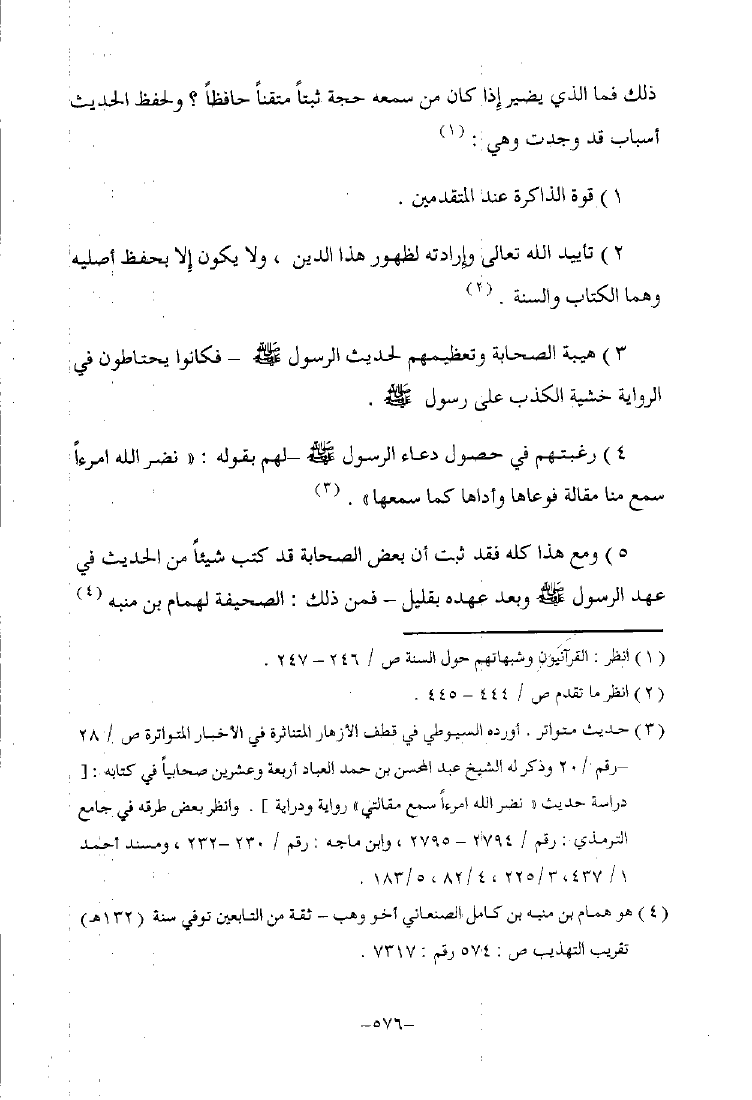 ذلك فما الذي يضير إذا كان من سمعه حجة ثبتاً متقناً حافظاً ؟ ولحفظ الحديث
أسباب قد وجدت وهي : (١)
١ ) قوة الذاكرة عند المتقدمين .
٢ ) تأييد الله تعالى وإرادته لظهور هذا الدين ، ولا يكون إلا بحفظ أصليه
وهما الكتاب والسنة . (٢)
٣ ) هيبة الصحابة وتعظيمهم لحديث الرسول ﷺ – فكانوا يحتاطون في
الرواية خشية الكذب على رسول ﷺ .
٤ ) رغبتهم في حصول دعاء الرسول ﷺ –لهم بقوله : « نضر الله امرءاً
سمع منا مقالة فوعاها وأداها كما سمعها» . (٣)
٥ ) ومع هذا كله فقد ثبت أن بعض الصحابة قد كتب شيئاً من الحديث في
عهد الرسول ﷺ وبعد عهده بقليل – فمن ذلك : الصحيفة لهمام بن منبه (٤)
(١) انظر : القرآنيون وشبهاتهم حول السنة ص / ٢٤٦ – ٢٤٧ .
(٢) انظر ما تقدم ص / ٤٤٤ – ٤٤٥ .
(٣) حديث متواتر . أورده السيوطي في قطف الأزهار المتناثرة في الأخبار المتواترة ص / ٢٨
–رقم /٢٠ وذكر له الشيخ عبد المحسن بن حمد العباد أربعة وعشرين صحابياً في كتابه : [
دراسة حديث « نضر الله امرءاً سمع مقالتي» رواية ودراية ] . وانظر بعض طرقه في جامع
الترمذي : رقم / ٢٧٩٤ – ٢٧٩٥ ، وابن ماجه : رقم / ٢٣٠ –٢٣٢ ، ومسند أحمد
١/ ٤٣٧، ٢٢٥/٣ ، ٨٢/٤ ، ١٨٣/٥ .
(٤) هو همام بن منبه بن كامل الصنعاني أخو وهب – ثقة من التابعين توفي سنة (١٣٢هـ)
تقريب التهذيب ص : ٥٧٤ رقم : ٧٣١٧ .
–٥٧٦–